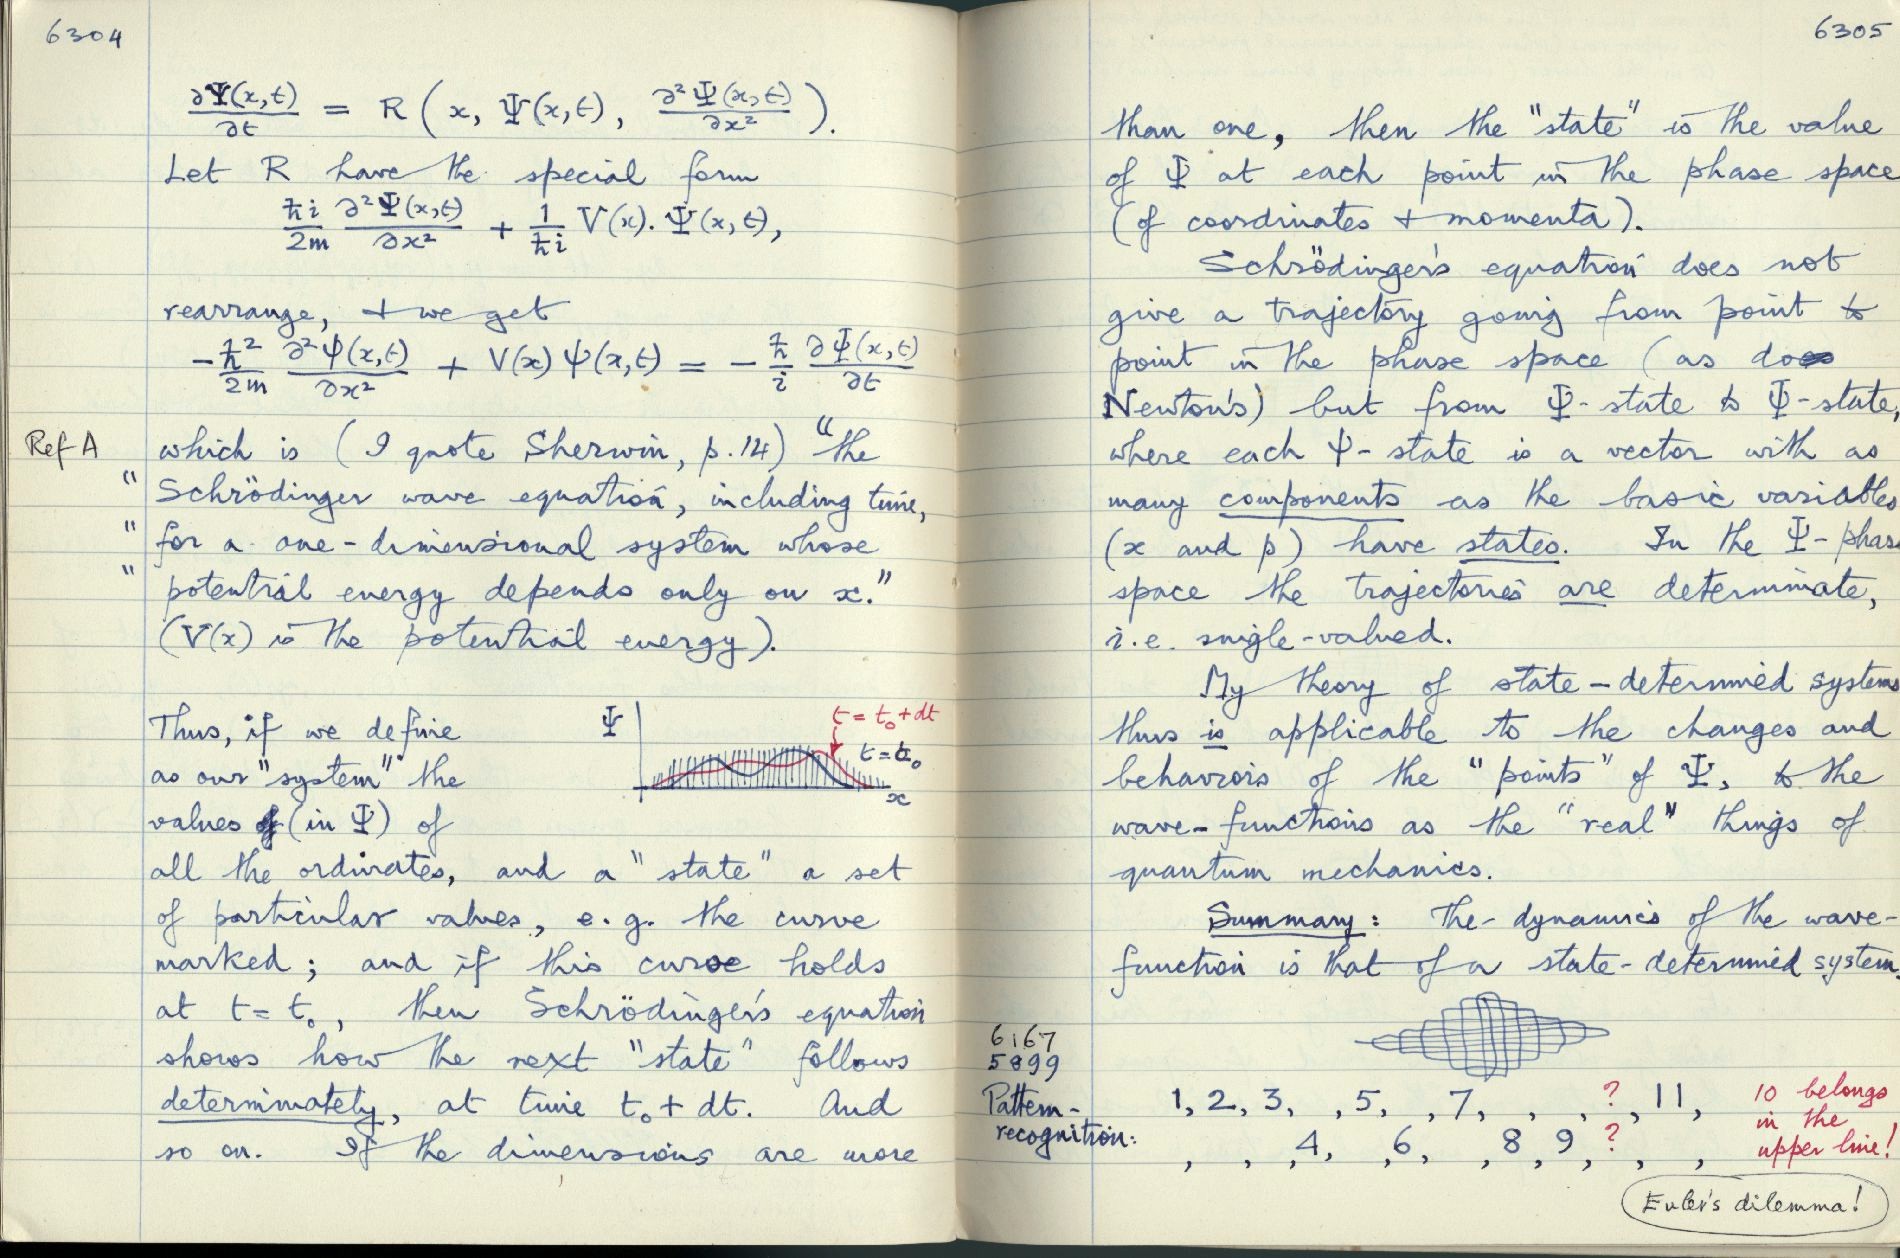 6304
∂Ψ(x,t)/∂t = R ( x, Ψ(x,t), ∂²Ψ(x,t)/∂x² ).
Let R have the special form
ħi/2m ∂²Ψ(x,t)/∂x² + 1/ħi V(x). Ψ(x,t),
rearrange, + we get
-ħ²/2m ∂²Ψ(x,t)/∂x² + V(x) Ψ(x,t) = - ħ/i ∂Ψ(x,t)/∂t
Ref A which is (I quote Sherwin, p.14) "the
" Schrödinger wave equation, including time,
" for a one-dimensional system whose
" potential energy depends only on x."
(V(x) is the potential energy).
Thus, if we define
as our "system" the
values (in Ψ) of
Ψ
t = t₀ + dt
t = t₀
x
all the ordinates, and a "state" a set
of particular values, e.g. the curve
marked; and if this curve holds
at t = t₀, then Schrödinger's equation
shows how the next "state" follows
determinately, at time t₀ + dt. And
so on. If the dimensions are more
6305
than one, then the "state" is the value
of Ψ at each point in the phase space
(of coordinates + momenta).
Schrödinger's equation does not
give a trajectory going from point to
point in the phase space (as do
Newton's) but from Ψ-state to Ψ-state,
where each Ψ-state is a vector with as
many components as the basic variables
(x and p) have states. In the Ψ-phase
space the trajectories are determinate,
i.e. single-valued.
My theory of state-determined systems
thus is applicable to the changes and
behaviors of the "points" of Ψ, to the
wave-functions as the "real" things of
quantum mechanics.
Summary: The dynamics of the wave-
function is that of a state-determined system.
6167
5899
Pattern-
recognition:
1, 2, 3, , 5, , 7, , , ? , 11,
, , , 4, , 6, , 8, 9, ? , ,
10 belongs
in the
upper line!
Euler's dilemma!